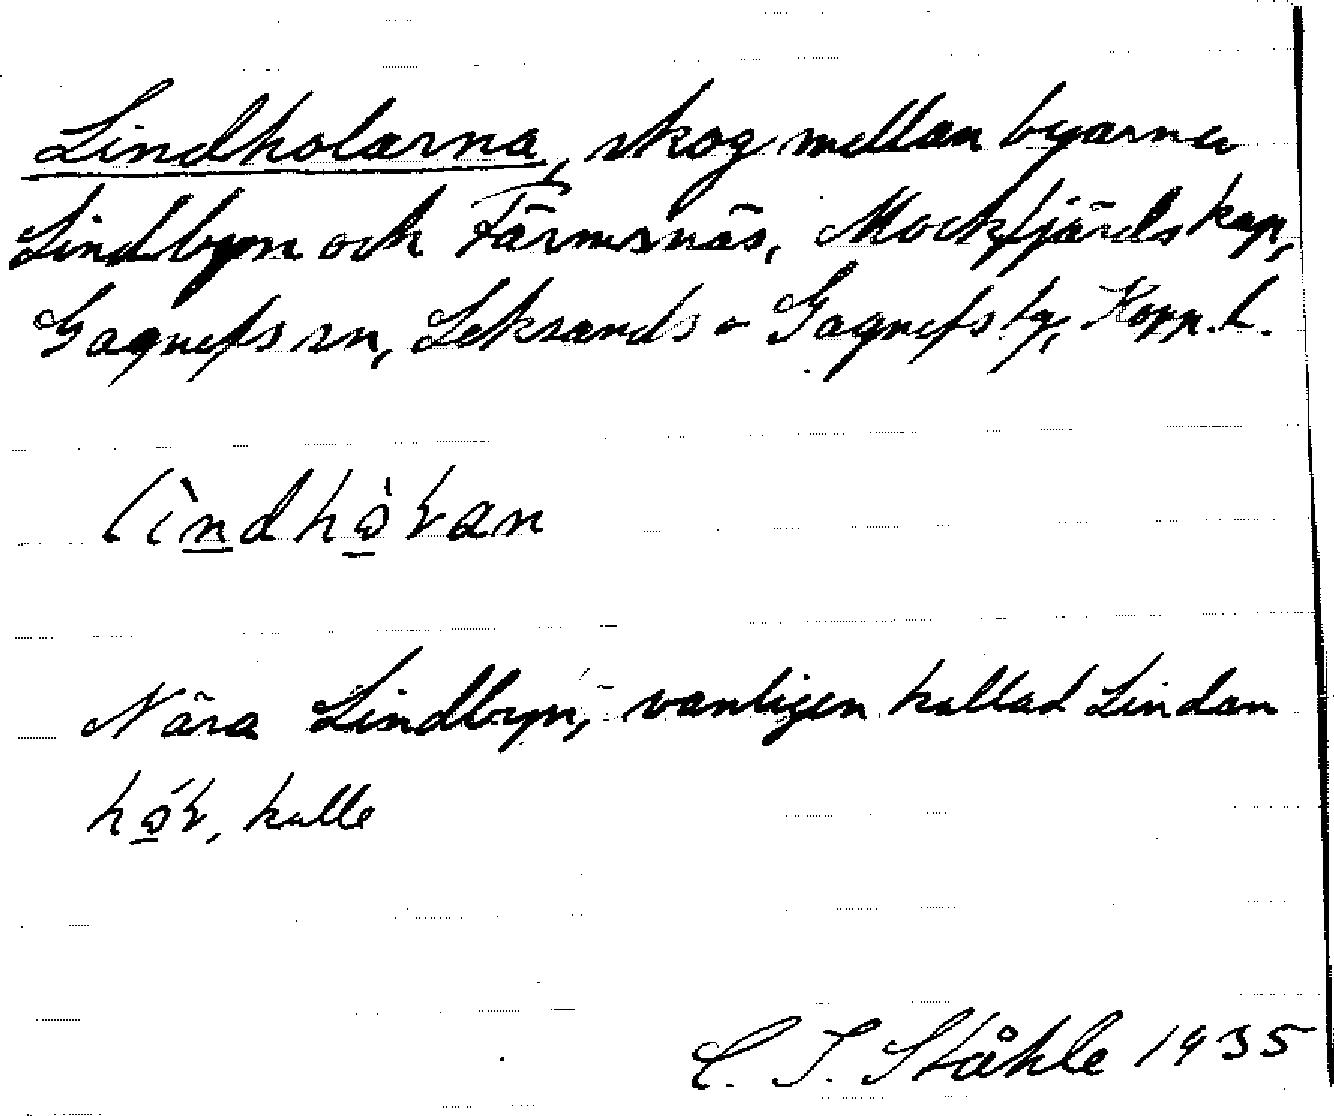 Lindholarna, skog mellan byarna
Lindbyn och Färmsnäs, Mockfjärds kap,
Gagnefs sn, Leksands o Gagnefs tg, Kopp. l.
lìndhò̱ƚan
Nära Lindbyn, vanligen kallad Lindan
hó̱ƚ, kulle
C. I. Ståhle 1935